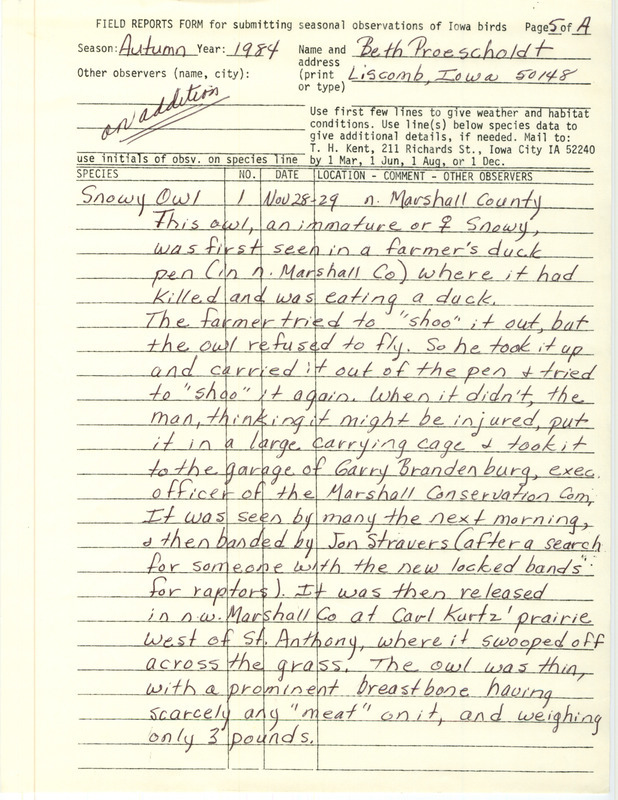 FIELD REPORTS FORM for submitting seasonal observations of Iowa birds Page 5 of A
Season: Autumn Year: 1984 Name and Beth Proescholdt
address
Other observers (name, city): (print Liscomb, Iowa 50148
or type)
an addition
Use first few lines to give weather and habitat
conditions. Use line(s) below species data to
give additional details, if needed. Mail to:
T. H. Kent, 211 Richards St., Iowa City IA 52240
use initials of obsv. on species line by 1 Mar, 1 Jun, 1 Aug, or 1 Dec.
SPECIES NO. DATE LOCATION - COMMENT - OTHER OBSERVERS
Snowy Owl 1 Nov 28-29 n. Marshall County
This owl, an immature or ♀ Snowy,
was first seen in a farmer's duck
pen (in n. Marshall Co) where it had
killed and was eating a duck.
The farmer tried to "shoo" it out, but
the owl refused to fly. So he took it up
and carried it out of the pen & tried
to "shoo" it again. When it didn't, the
man, thinking it might be injured, put
it in a large carrying cage & took it
to the garage of Garry Brandenburg, exec.
officer of the Marshall Conservation Com.
It was seen by many the next morning,
& then banded by Jon Stravers (after a search
for someone with the new locked bands"
for raptors). It was then released
in n.w. Marshall Co at Carl Kurtz' prairie
west of St. Anthony, where it swooped off
across the grass. The owl was thin,
with a prominent breastbone having
scarcely any "meat" on it, and weighing
only 3 pounds.